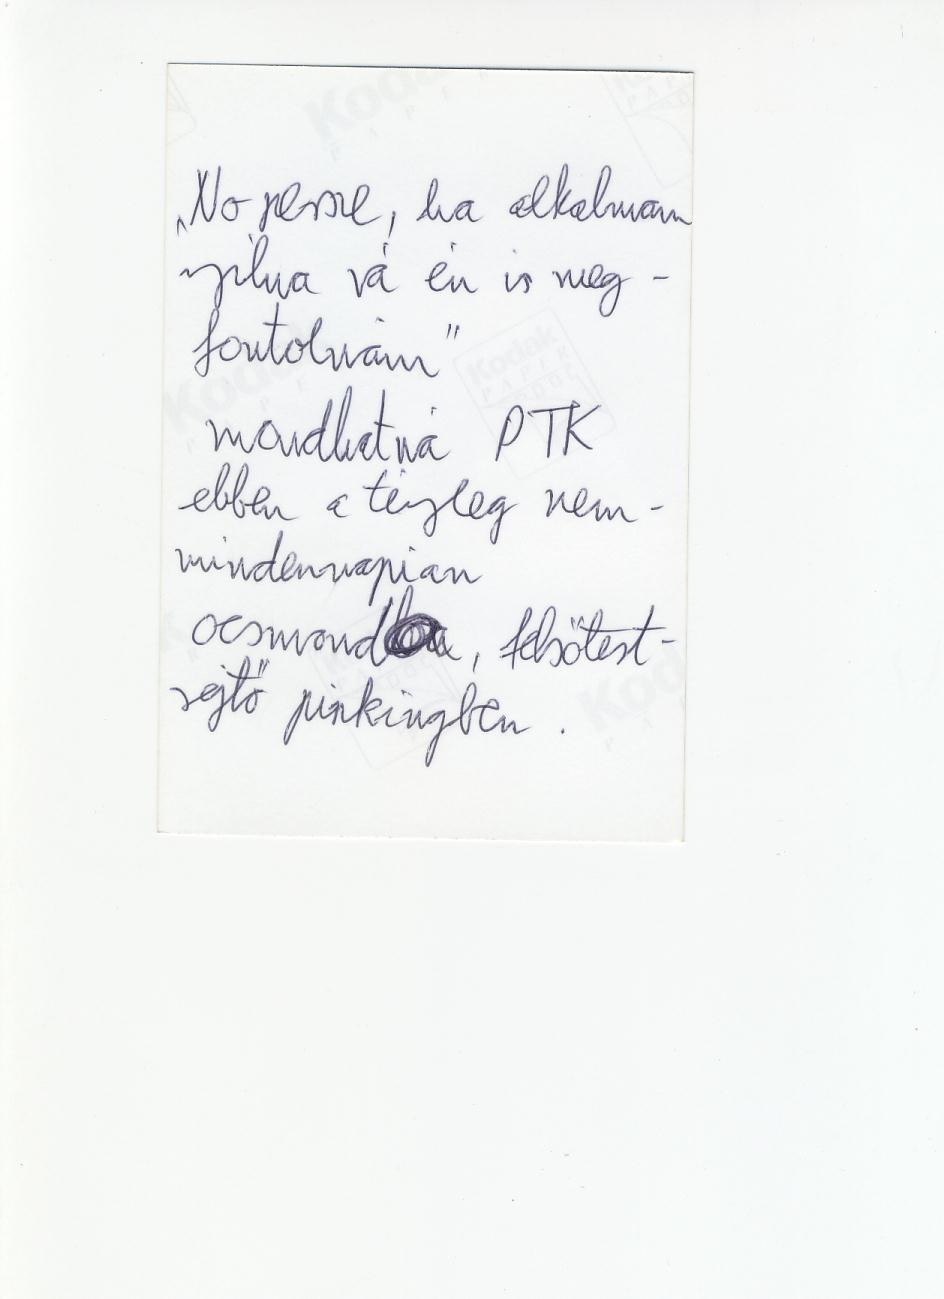 „No persze, ha alkalmam
nyilna rá én is meg-
fontolnám"
mondhatná PTK
ebben a tényleg nem-
mindennapian
ocsmond, felsőtest-
sejtő pinkingben.